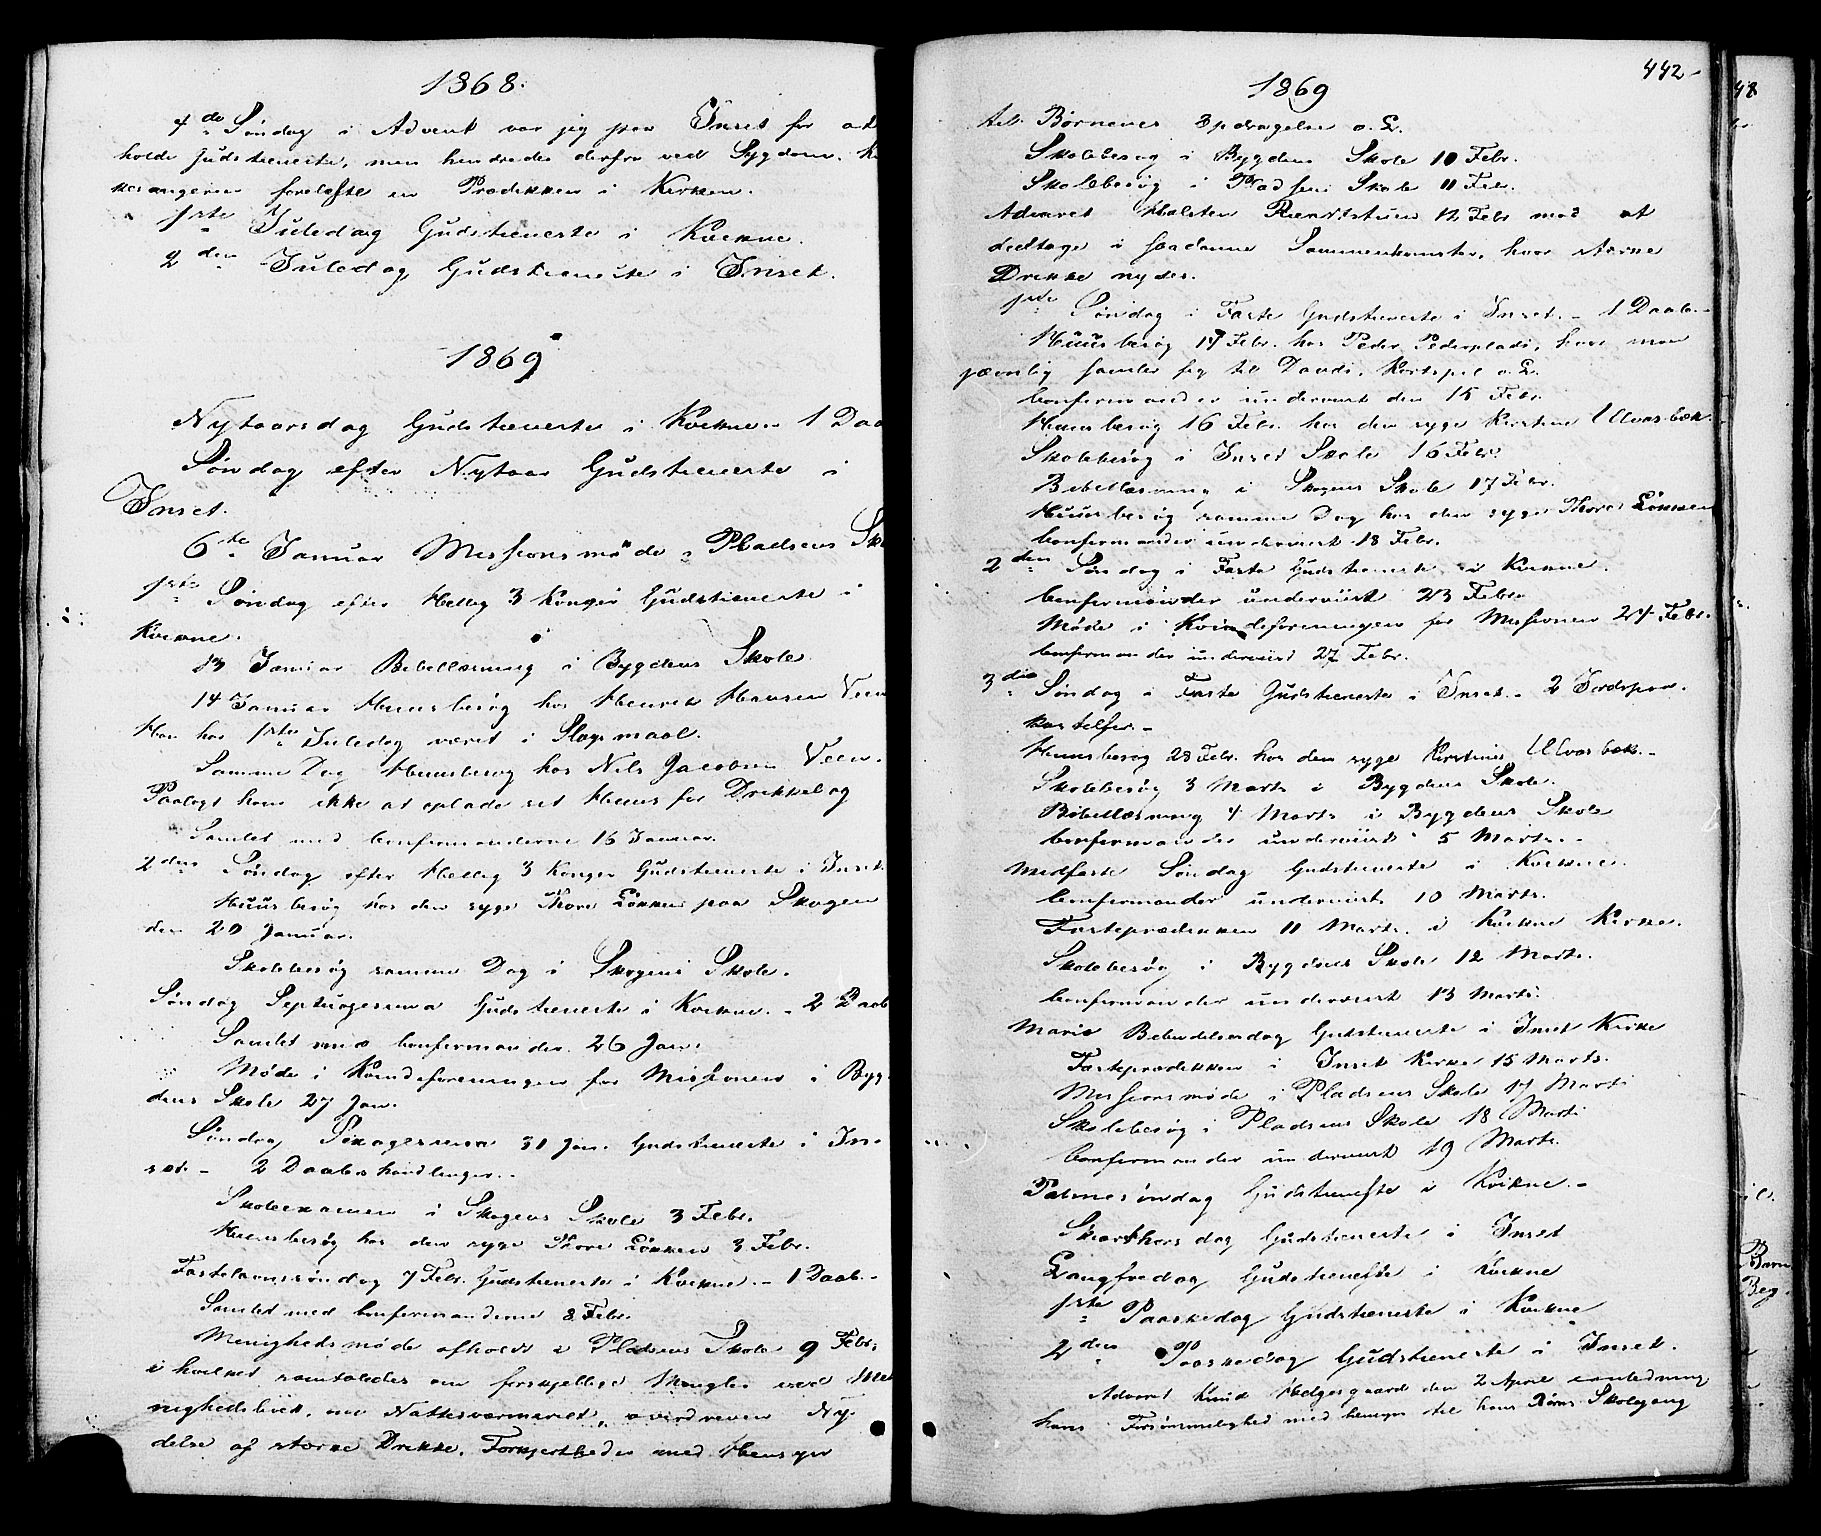 1868.
4de Søndag i Advent var jeg paa Inset for at
holde Gudstieneste, men hindredes derfra ved Sygdom. Kir
kesangeren forelæste en Prædikken i Kirken.
1ste Juledag Gudstieneste i Kvikne.
2den Juledag Gudstieneste i Inset.
1869
Nytaarsdag Gudstieneste i Kvikne 1 Daa
Søndag efter Nytaar Gudstieneste i
Inset.
6te Januar Missionsmøde i Pladsens Sk
1ste Søndag efter Hellig 3 Konger Gudstieneste i
Kvikne.
13 Januar Bibellæsning i Bygdens Skole
14 Januar Huusbesøg hos Henrik Hansen Veen
Han har 1ste Juledag været i Slagsmaal.
Samme Dag Huusbesøg hos Nils Jacobsen Veen.
Paalagt ham ikke at oplade sit Huus for Drikkelag
Samlet med Confirmanderne 16 Januar.
2den Søndag efter Hellig 3 Konger Gudstieneste i Inset.
Huusbesøg hos den syge Thore Løkken paa Skogen
den 20 Januar.
Skolebesøg samme Dag i Skogens Skole.
Søndag Septuagesima Gudstieneste i Kvikne. - 2 Daab
Samlet med Confirmander 26 Jan.
Møde i Kvindeforeningen for Missionen i Byg-
dens Skole 27 Jan.
Søndag Sexagesima 31 Jan. Gudstieneste i In-
set. - 2 Daabshandlinger.-
Skoleexamen i Skogens Skole 3 Febr.
Huusbesøg hos den syge Thore Løkken 3 Febr.
Fastelavnssøndag 7 Febr. Gudstieneste i Kvikne. - 1 Daab.-
Samlet med Confirmanderne 8 Febr.
Menighedsmøde afholdt i Pladsens Skole 9 Febr.
i hvilket samtaledes om forskjellige Mangler ved Me
nighedslivet, om Nattesværmeriet, overdreven Ny-
delse af stærke Drikke, Forkjertheder med Hensyn
442-
1869
til Børnenes Opdragelse o. L.
Skolebesøg i Bygdens Skole 10 Febr.
Skolebesøg i Pladsens Skole 11 Febr.
Advaret Halsten 12 Febr mod at
deeltage i saadanne Sammenkomster, hvor stærke
Drikke nydes.
1ste Søndag i Faste Gudstieneste i Inset. - 1 Daab.-
Huusbesøg 14 Febr. hos Peder Pedersplads, hvor man
jævnlig samler sig til Dands, Kortspil o. L.
Confirmander underviist den 15 Febr.
Huusbesøg 16 Febr. hos den syge Kirstine Ulvasbæk.
Skolebesøg i Inset Skole 16 Febr.
Bibellæsning i Skogens Skole 17 Febr.
Huusbesøg samme Dag hos den syge Thore Løkken
Confirmander underviist 18 Febr.
2den Søndag i Faste Gudstieneste i Kvikne.
Confirmander underviist 23 Febr.
Møde i Kvindeforeningen for Missionen 24 Febr.
Confirmander underviist 27 Febr.
3die Søndag i Faste Gudstieneste i Inset. - 2 Jordspaa-
kastelser.-
Huusbesøg 28 Febr. hos den syge Kirstine Ulvasbæk.-
Skolebesøg 3 Marts i Bygdens Skole.
Bibellæsning 4 Marts i Bygdens Skole
Confirmander underviist 5 Marts.-
Midfaste Søndag Gudstieneste i Kvikne.
Confirmander underviist 10 Marts.
Fasteprædikken 11 Marts. i Kvikne Kirke.
Skolebesøg i Bygdens Skole 12 Marts.
Confirmander underviist 13 Marts.
Mariæ Bebudelsesdag Gudstieneste i Inset Kirke
Fasteprædikken i Inset Kirke 15 Marts.
Missionsmøde i Pladsens Skole 17 Marts
Skolebesøg i Pladsens Skole 18 Marts
Confirmander underviist 19 Marts.
Palmesøndag Gudstieneste i Kvikne.-
Skiærthorsdag Gudstieneste i Inset
Langfredag Gudstieneste i Kvikne
1ste Paaskedag Gudstieneste i Kvikne
2den Paaskedag Gudstieneste i Inset.
Advaret Knud Helgesgaard den 2 April i anledning
hans Forsømmelighed med hensyn til hans Børns Skolegang
48
Barn
Beg.